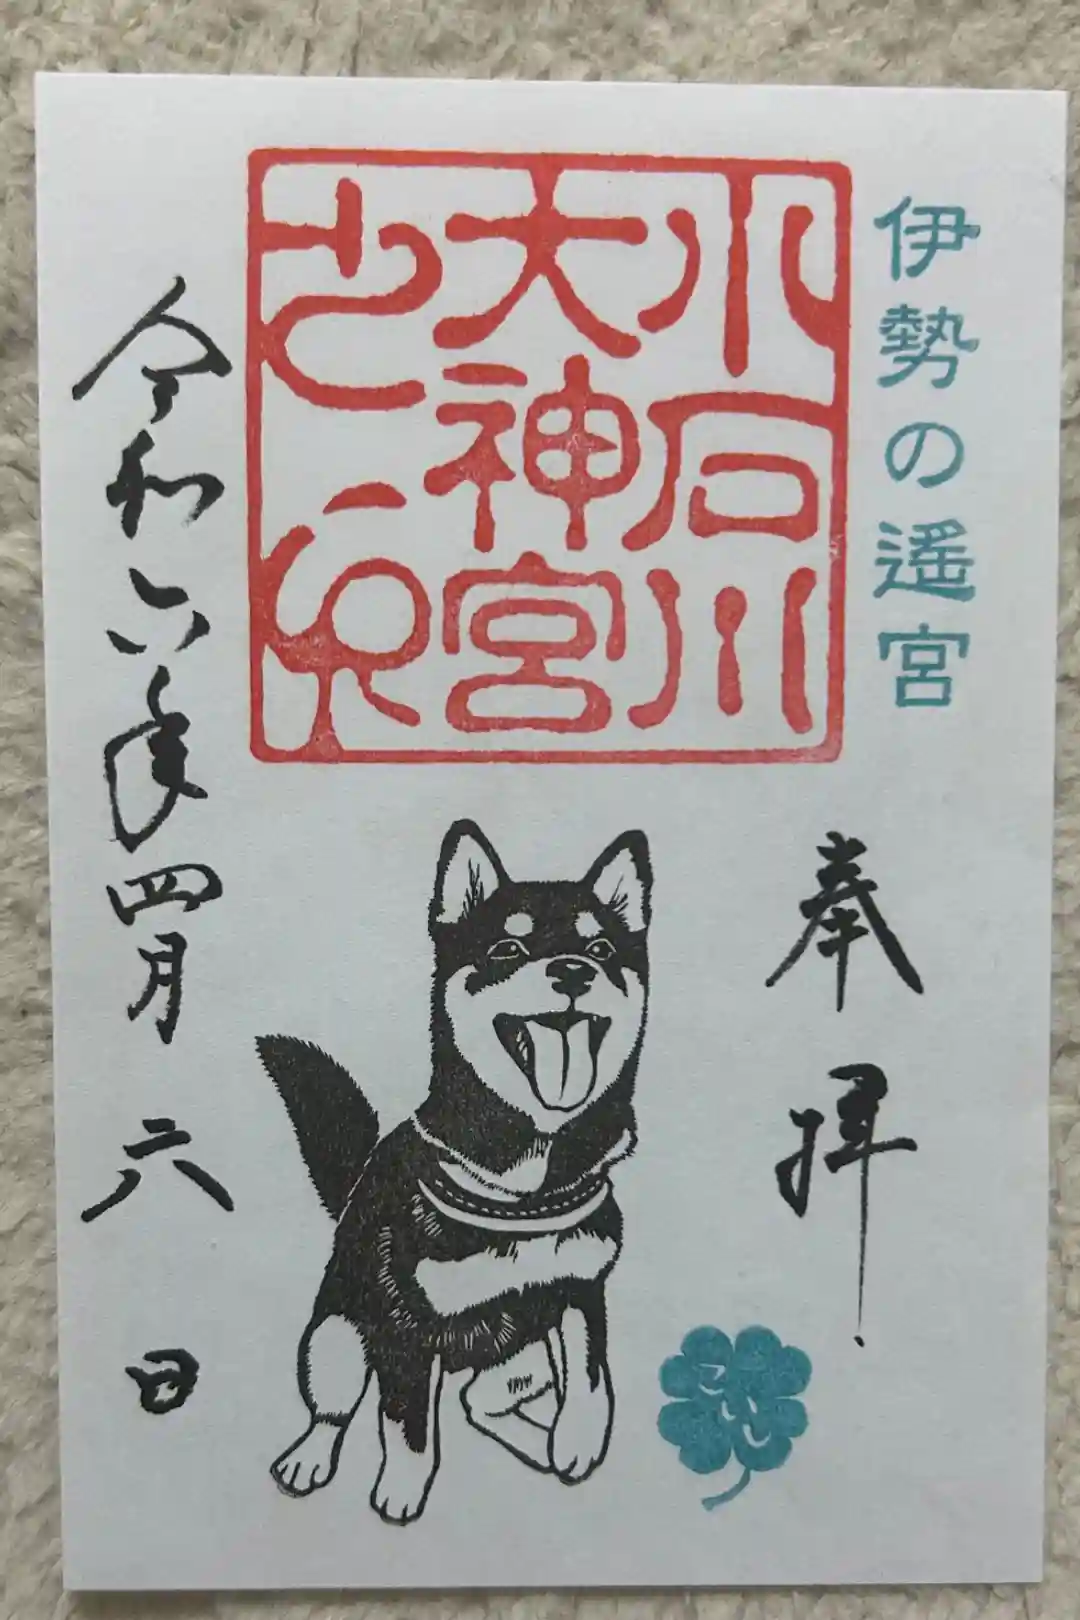 伊勢の遥宮
奉拝
小石川
大神宮
之印
令和六年四月六日
こいし